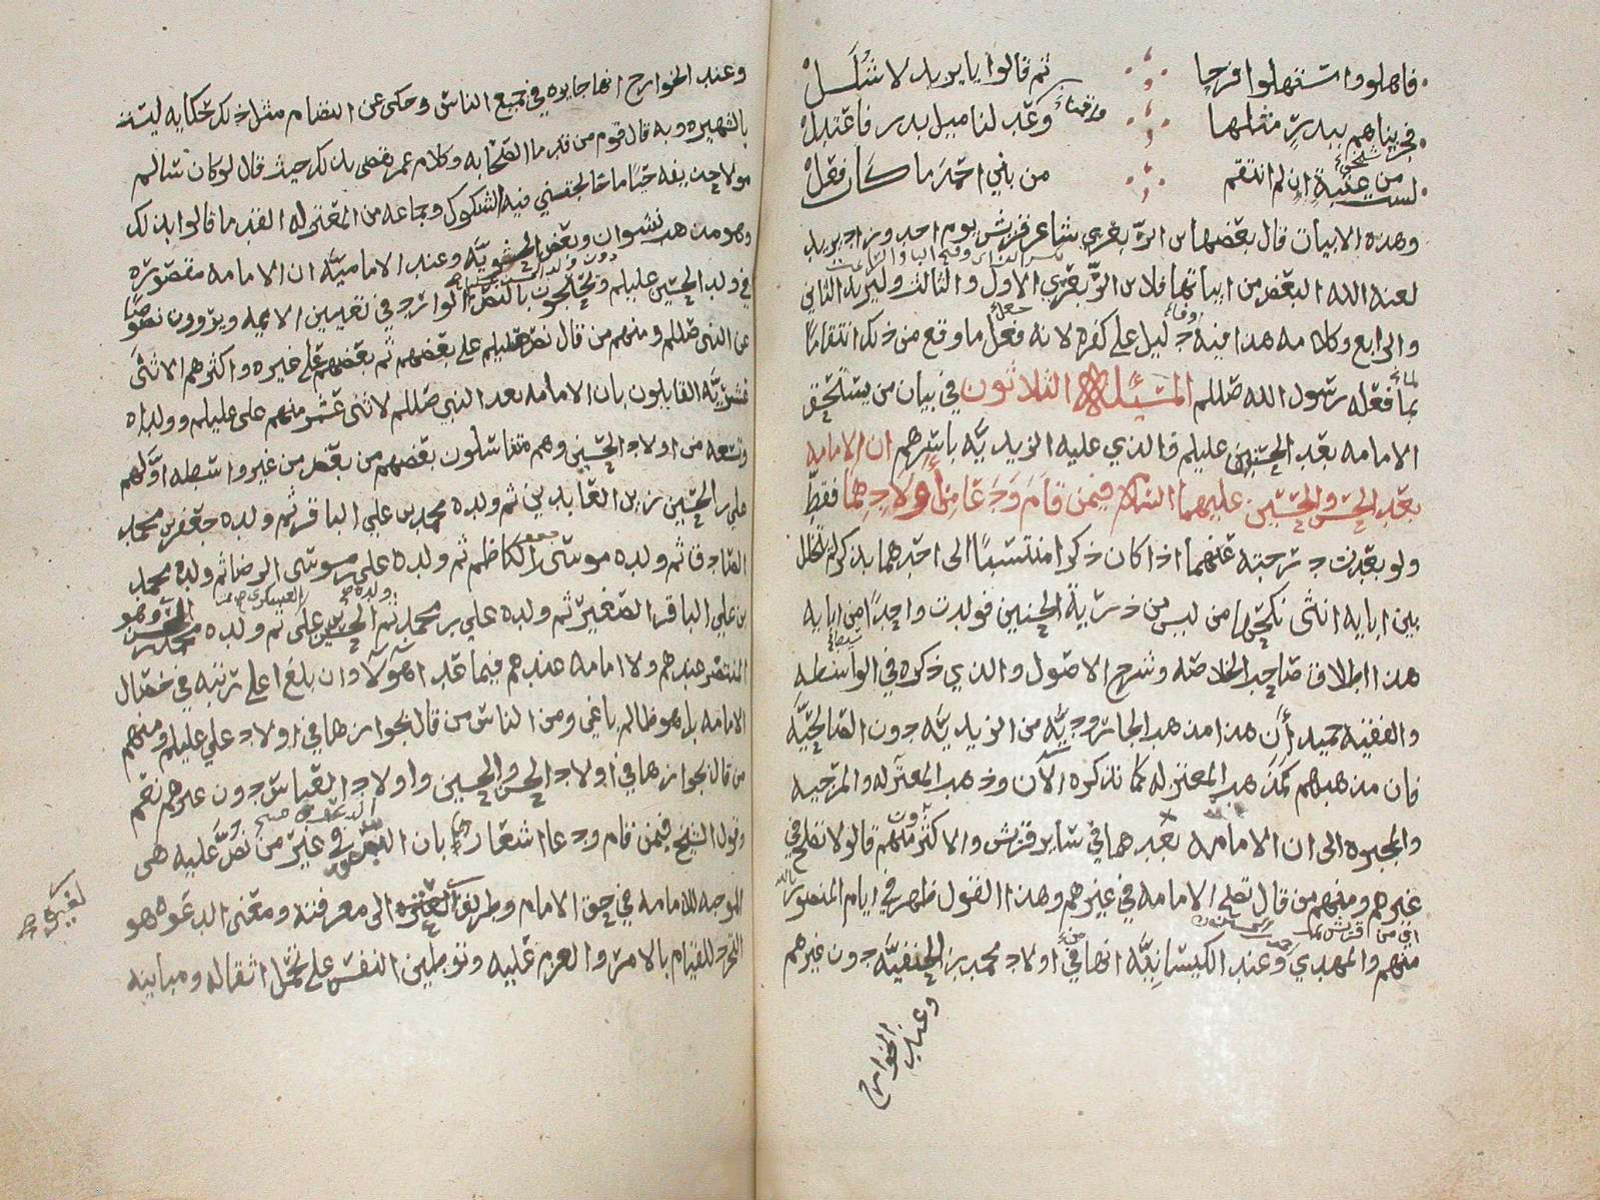 فاهلوا واستهلوا فرحا ثم قالوا يا يزيد لا شلل
فجزيناهم ببدر مثلها وعدلنا ميل بدر فاعتدل
لست من عتبة ان لم انتقم من بني احمد ما كان فعل
وهذه الابيات قال بعضها بن الزبعرى شاعر قريش يوم احد وزاد يزيد
لعنه الله البعض من ابياتها فلابن الزبعرى الاول والثالث وليزيد الثاني
والرابع وكلامه هذا فيه دليل على كفره لانه فعل ما وقع من ذلك انتقاما
لما فعله رسول الله صللم المسئلة الثلاثون في بيان من يستحق
الامامه بعد الحسنين عليلم فالذي عليه الزيديه باسرهم ان الامامه
بعد الحسن والحسين عليهما السلام فيمن قام ودعا من اولادهما فقط
ولو بعدت درجته عنهما اذا كان ذكرا منتسبا الى احدهما بذكر لم تخلل
بين ابايه انثى نكحها من ليس من ذرية الحسنين فولدت واحدا من ابايه
هذا اطلاق صاحب الخلاصه وشرح الاصول والذي ذكره في الواسطه
والفقيه حميد أن هذا مذهب الجاروديه من الزيديه دون الصالحيه
فان مذهبهم كمذهب المعتزله كما نذكره الآن وذهب المعتزله والمرجيه
والمجبره الى ان الامامه بعدهما في ساير قريش والاكثرون منهم قالوا لا تصلح في
غيرهم ومنهم من قال تصلح الامامه في غيرهم وهذا القول ظهر في ايام المنصور بالله
منهم والمهدي وعند الكيسانيه انها في اولاد محمد بن الحنفيه دون غيرهم
وعند الخوارج
وعند الخوارج انها جايزه في جميع الناس وحكى عن النظام مثل ذلك حكايه ليست
بالشهيره وبه قال قوم من قدما الصحابه وكلام عمر يقضي بذلك حيث قال لو كان سالم
مولا حذيفه حيا ما خالجتني فيه الشكوك وجماعه من المعتزله القدما قالوا بذلك
وهو مذهب نشوان وبعض الحشويه وعند الاماميه ان الامامه مقصوره
في ولد الحسين عليلم دون ولد الحسن ويحتجون بالنص الوارد في تعيين الايمه ويروون نصوصا
عن النبي صللم ومنهم من قال نص عليلم على بعضهم ثم بعضهم على غيره واكثرهم الاثنى
عشريه القايلون بان الامامه بعد النبي صللم لاثنى عشر منهم على عليلم وولداه
وتسعه من اولاد الحسين وهم متناسلون بعضهم من بعض من غير واسطه اولهم
علي بن الحسين زين العابدين ثم ولده محمد بن علي الباقر ثم ولده جعفر بن محمد
الصادق ثم ولده موسى بن جعفر الكاظم ثم ولده علي بن موسى الرضا ثم ولده محمد
بن علي الباقر الصغير ثم ولده علي بن محمد ثم ولده الحسن بن علي العسكري ثم ولده محمد بن الحسن وهو
المنتظر عندهم ولا امامه عندهم فيما عدا هولا وان بلغ اعلى رتبه في خصال
الامامه بل هو ظالم باغي ومن الناس من قال بجوازها في اولاد علي عليلم ومنهم
من قال بجوازها في اولاد الحسن والحسين واولاد العباس دون غيرهم نعم
وقول الشيخ فيمن قام ودعا اشعار بان الدعوة في غير من نص عليه هى
الموجبه للامامه في حق الامام وطريق العتره الى معرفته ومعنى الدعوه هو
التجرد للقيام بالامر والعزم عليه وتوطين النفس على تحمل اثقاله ومباينه
لغيره صح